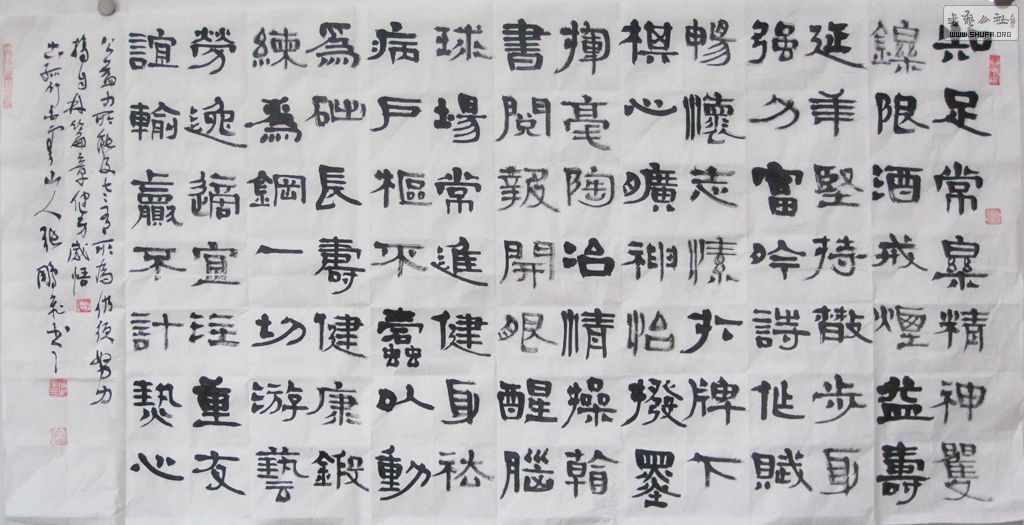 知足常樂精神矍
鑠限酒戒煙益壽
延年堅持散步身
强力富吟詩作賦
暢懷志愫打牌下
棋心曠神怡撥墨
揮毫陶冶情操翰
書閱報開眼醒腦
球場常進健身祛
病戶樞不蠹以動
爲礎長壽健康鍛
練爲鋼一切游藝
勞逸適宜注重友
誼輸贏不計熱心
公益力所能及老有所為仍須努力
摘自篇章感悟
山人張鵬飛書
書藝公社
WWW.SHUFA.ORG